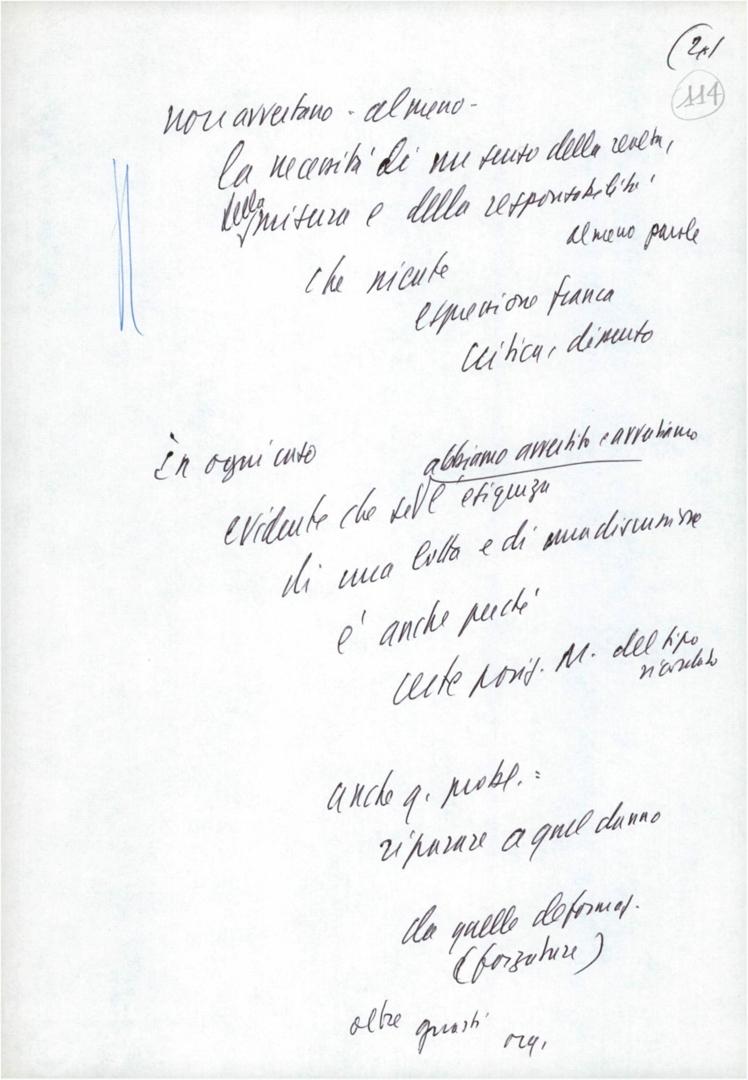 114
non avvertano - almeno -
la necessità di un senso della realtà,
della misura e della responsabilità
almeno parole
che
espressione franca
critica, dissenso
in ogni caso
abbiamo avvertito e avvertiamo
evidente che se l'esigenza
di una lotta e di una discussione
è anche perché
certe posiz. M. del tipo
ricordato
anche q. probl. :
riparare a quel danno
da quelle deformaz.
(forzature)
oltre guasti org.